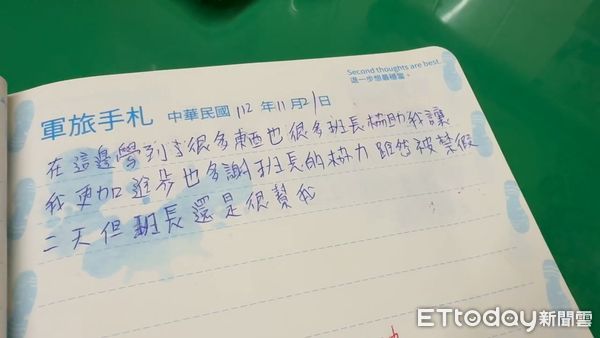 Second thoughts are best.
退一步想最穩當。
軍旅手札 中華民國 112 年 11 月 21 日
在這邊學到了很多東西也很多班長協助我讓
我更加進步也多謝班長的協力 雖然被禁假
二天但班長還是很幫我
ETtoday新聞雲